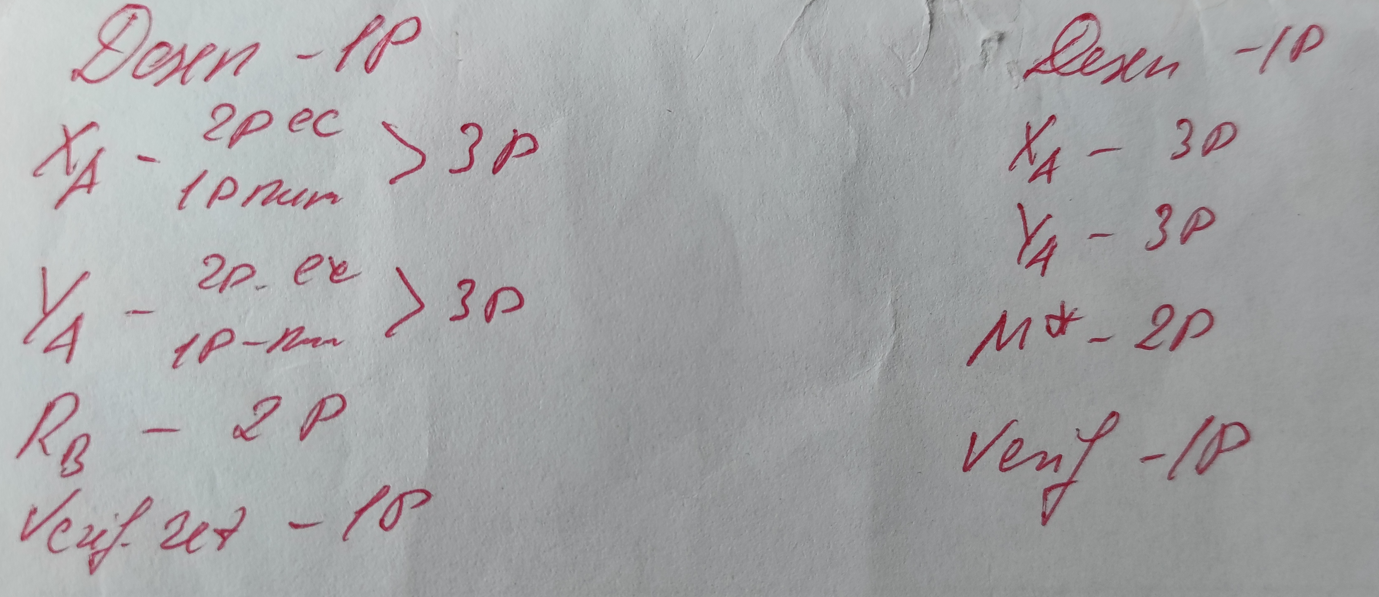 Desen - 1P
XA - 2p ec
1P num > 3P
YA - 2p. ec
1P - num > 3P
RB - 2P
Verif. rez - 1P
Desen - 1P
XA - 3P
YA - 3P
M* - 2P
Verif - 1P